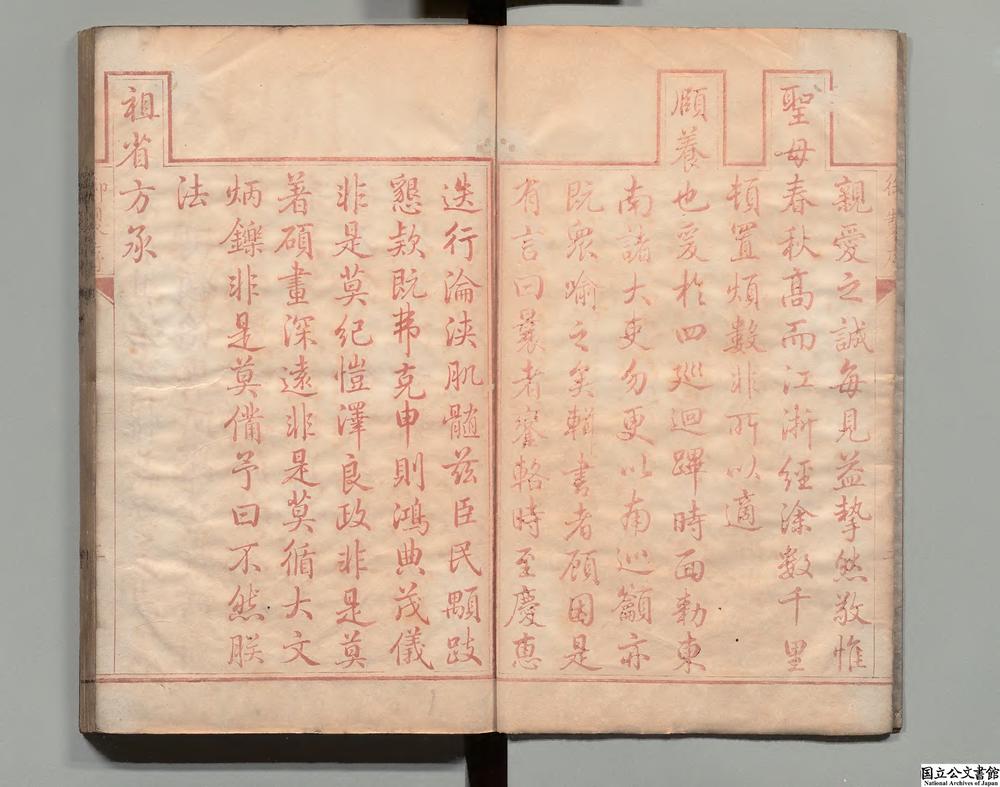 親愛之誠每見益摯然敬惟
聖母春秋髙而江淛經塗數千里
頓置煩數非所以適
頤養也爰於四廵迴蹕時面勅東
南諸大吏勿更以南巡籲亦
既衆喻之矣輯書者顧因是
有言曰曩者鑾輅時至慶惠
迭行淪浹肌髓兹臣民顒跂
懇欵既弗克申則鴻典茂儀
非是莫紀愷澤良政非是莫
著碩畫深遠非是莫循大文
炳鑠非是莫備予曰不然朕
法
祖省方承
国立公文書館
National Archives of Japan